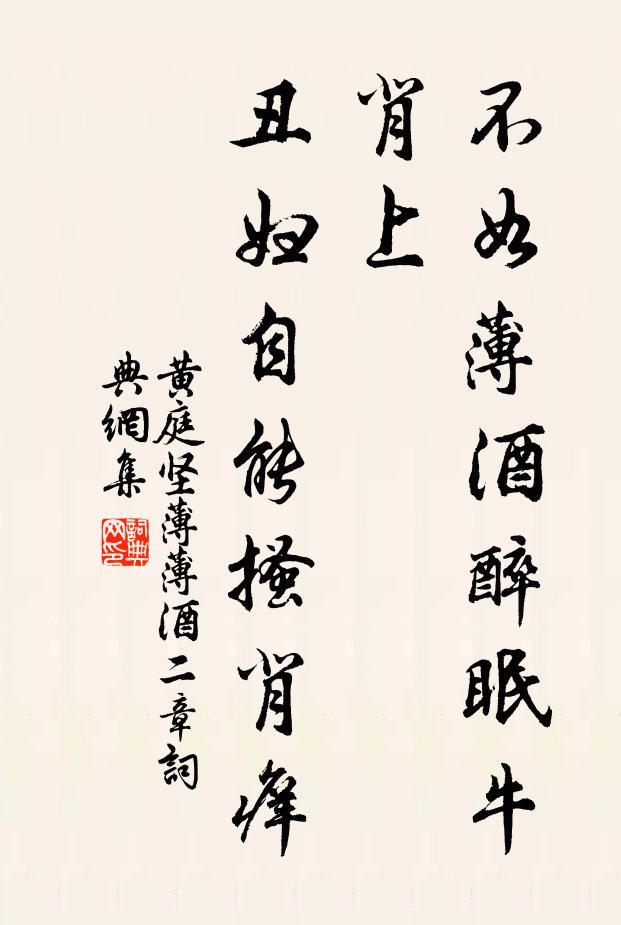 不如薄酒醉眠牛
背上
丑妇自能搔背痒
黄庭坚薄薄酒二章詞
典網集
詞典
网印